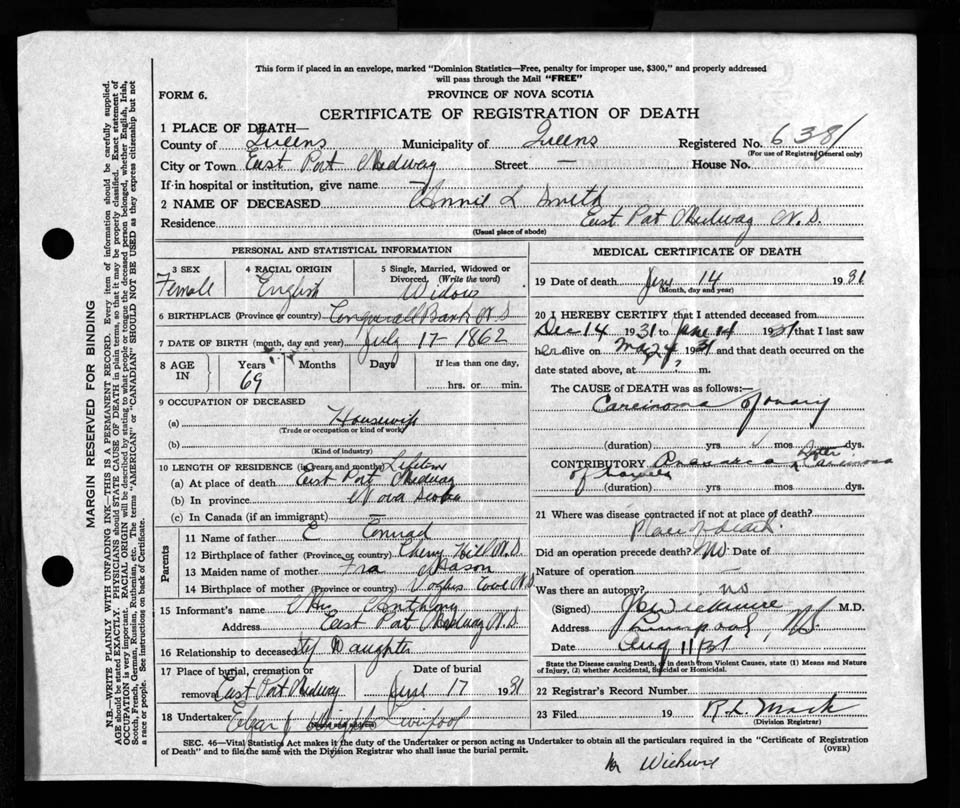 This form if placed in an envelope, marked "Dominion Statistics—Free, penalty for improper use, $300," and properly addressed
will pass through the Mail "FREE"
FORM 6.
PROVINCE OF NOVA SCOTIA
CERTIFICATE OF REGISTRATION OF DEATH
1 PLACE OF DEATH—
County of Queens Municipality of Queens Registered No. 6381
(For use of Registrar General only)
City or Town East Port Medway Street — House No.
If in hospital or institution, give name —
2 NAME OF DECEASED Annie L Smith
Residence East Port Medway N.S.
(Usual place of abode)
PERSONAL AND STATISTICAL INFORMATION
3 SEX Female
4 RACIAL ORIGIN English
5 Single, Married, Widowed or Divorced, (Write the word) Widow
6 BIRTHPLACE (Province or country) Conquerall Bank N S
7 DATE OF BIRTH (month, day and year) July 17 - 1862
8 AGE IN Years 69 Months Days If less than one day, hrs. or min.
9 OCCUPATION OF DECEASED
(a) Housewife
(Trade or occupation or kind of work)
(b)
(Kind of industry)
10 LENGTH OF RESIDENCE (in years and months) Lifetime
(a) At place of death East Port Medway
(b) In province Nova Scotia
(c) In Canada (if an immigrant) —
Parents
11 Name of father E Conrad
12 Birthplace of father (Province or country) Cherry Hill N.S.
13 Maiden name of mother Mason
14 Birthplace of mother (Province or country) Voglers Cove N.S
15 Informant's name Anthony
Address East Port Medway N.S.
16 Relationship to deceased Step Daughter
17 Place of burial, cremation or removal East Port Medway
Date of burial June 17 1931
18 Undertaker Liverpool
MEDICAL CERTIFICATE OF DEATH
19 Date of death June 14 1931
(Month, day and year)
20 I HEREBY CERTIFY that I attended deceased from
Dec 14 1931 to June 14 1931 that I last saw
her alive on May 24 1931 and that death occurred on the
date stated above, at ? m.
The CAUSE OF DEATH was as follows:—
Carcinoma of ovary
(duration) yrs mos dys.
CONTRIBUTORY Carcinoma
of
(duration) yrs mos dys.
21 Where was disease contracted if not at place of death?
Place of death
Did an operation precede death? No Date of
Nature of operation —
Was there an autopsy? no
(Signed) J Wickwire M.D.
Address Liverpool, N.S.
Date Aug 11/31
State the Disease causing Death, or in death from Violent Causes, state (1) Means and Nature
of Injury, (2) whether Accidental, Suicidal or Homicidal.
22 Registrar's Record Number
23 Filed 19 R. L. Mack
(Division Registrar)
SEC. 46—Vital Statistics Act makes it the duty of the Undertaker or person acting as Undertaker to obtain all the particulars required in the "Certificate of Registration
of Death" and to file the same with the Division Registrar who shall issue the burial permit.
(OVER)
Wickwire
MARGIN RESERVED FOR BINDING
N.B.—WRITE PLAINLY WITH UNFADING INK—THIS IS A PERMANENT RECORD. Every item of information should be carefully supplied.
AGE should be stated EXACTLY. PHYSICIANS should STATE CAUSE OF DEATH in plain terms, so that it may be properly classified. Exact statement of
OCCUPATION is very important. RACIAL ORIGIN will be described by stating to what people or tongue the deceased person belonged, whether English, Irish,
Scotch, French, German, Russian, Ruthenian, etc. The terms "AMERICAN" or "CANADIAN" SHOULD NOT BE USED as they express citizenship but not
a race or people. See instructions on back of Certificate.